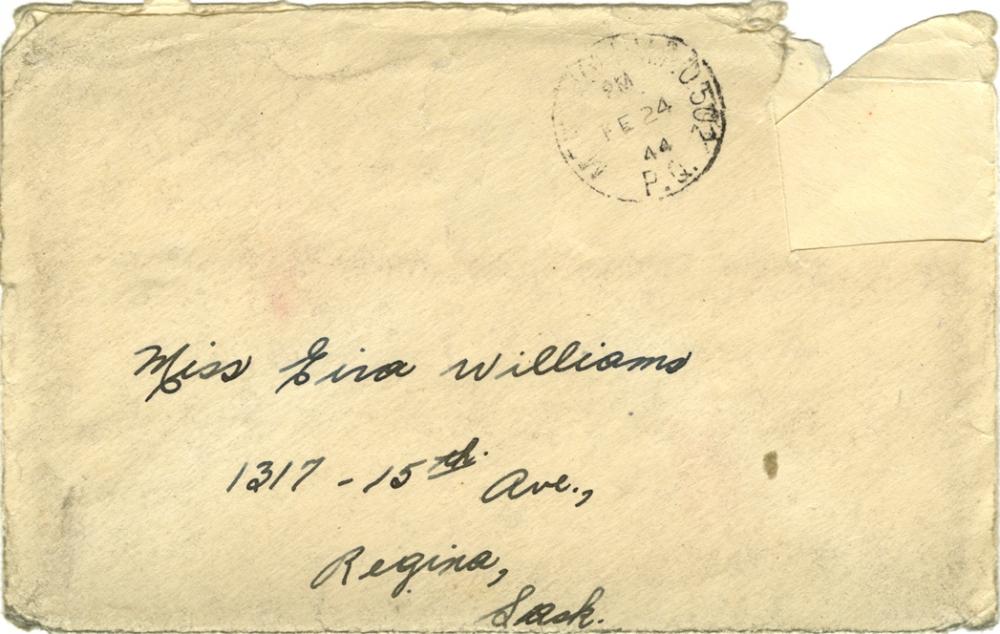 PM
FE 24
44
P.Q.
Miss Eira Williams
1317 - 15th Ave.,
Regina,
Sask.